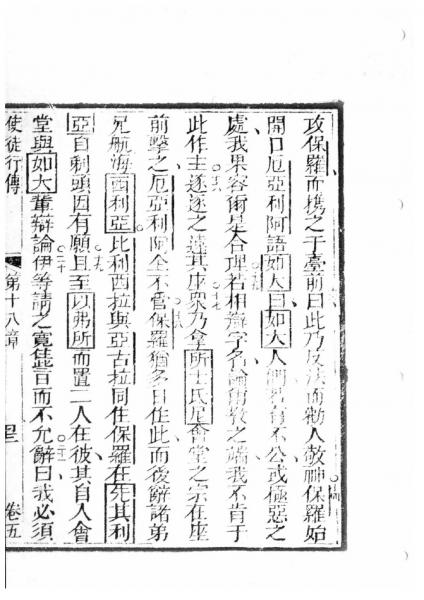 攻保羅而携之于臺前曰此乃反法而勸人敬神保羅始
開口厄亞利阿語如大曰如大人們若有不公或極惡之
處我果容術是合理若相辯字名論爾教之端我不肯于
此作主遂逐之遠其座眾乃拿所士氏尼會堂之宗在座
前擊之厄亞利阿全不管保羅猶多日住此而後辭諸弟
兄航海西利亞比利西拉與亞古拉同住保羅在先其利
亞自剃頭因有願且至以弗所而置二人在彼其自入會
堂與如大輩辯論伊等請之寬而不允辭曰我必須
使徒行傳 第十八章 卷五